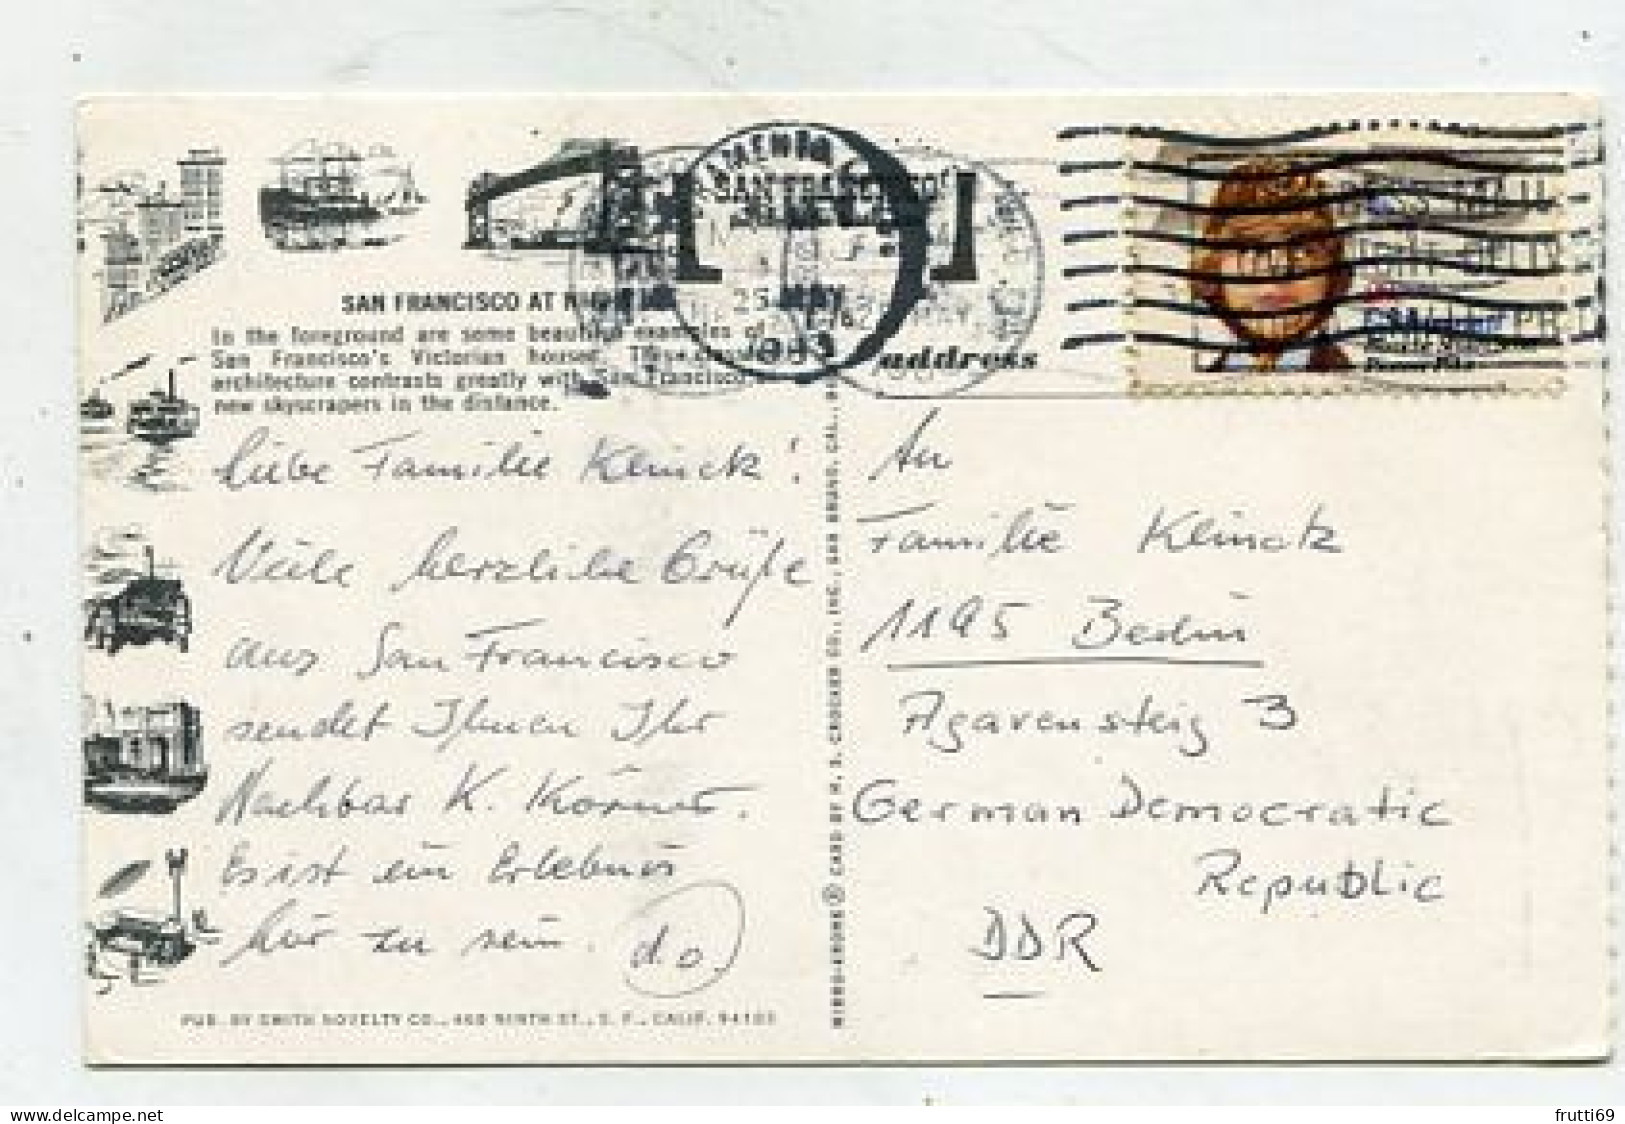 SAN FRANCISCO AT NIGHT
In the foreground are some beautiful examples of
San Francisco's Victorian houses. This classic
architecture contrasts greatly with San Francisco's
new skyscrapers in the distance.
Liebe Familie Klinck!
Viele herzliche Grüße
aus San Francisco
sendet Ihnen Ihr
Nachbar K. Körner.
Es ist ein Erlebnis
hier zu sein. d.o.
PUB. BY SMITH NOVELTY CO., 460 NINTH ST., S. F., CALIF. 94103
MIRRO-KROME® CARD BY H. S. CROCKER CO., INC., SAN BRUNO, CAL.,
SAN FRANCISCO
25 MAY
1983
address
An
Familie Klinck
1195 Berlin
Agavensteig 3
German Democratic
Republic
DDR
delcampe.net
frutti69